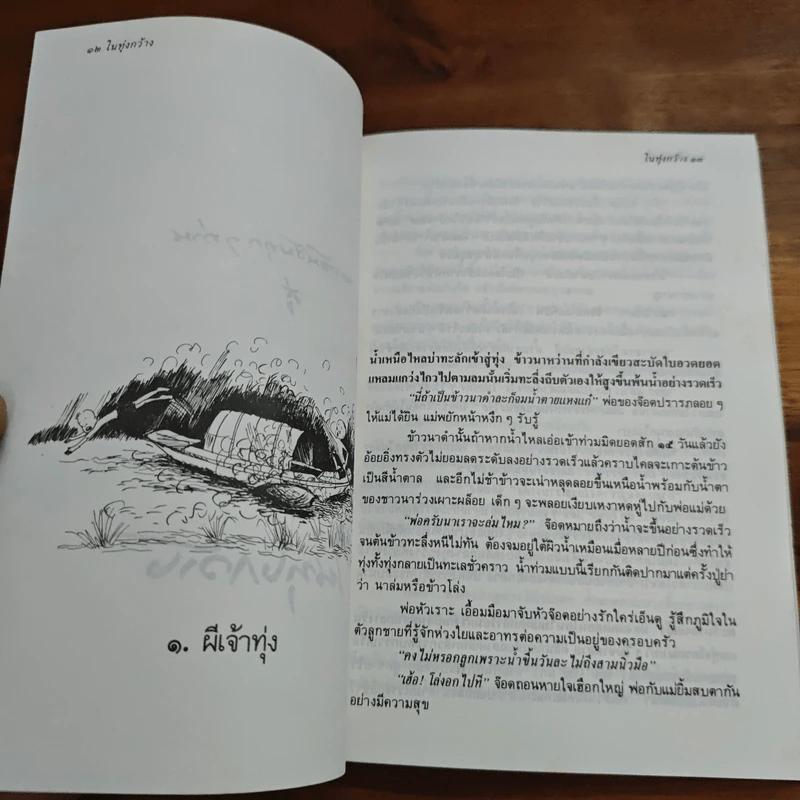 ๑๒ ในทุ่งกว้าง
๑. ผีเจ้าทุ่ง
ในทุ่งกว้าง ๑๓
น้ำเหนือไหลบ่าทะลักเข้าสู่ทุ่ง ข้าวนาหว่านที่กำลังเขียวสะบัดใบอวดยอด
แหลมแกว่งไกวไปตามลมนั้นเริ่มทะลึ่งถีบตัวเองให้สูงขึ้นพ้นน้ำอย่างรวดเร็ว
“นี่ถ้าเป็นข้าวนาดำละก็อมน้ำตายแหงแก๋” พ่อของจ๊อดปรารภลอย ๆ
ให้แม่ได้ยิน แม่พยักหน้าหงึก ๆ รับรู้
ข้าวนาดำนั้นถ้าหากน้ำไหลเอ่อเข้าท่วมมิดยอดสัก ๑๕ วันแล้วยัง
อ้อยอิ่งทรงตัวไม่ยอมลดระดับลงอย่างรวดเร็วแล้วคราบไคลจะเกาะต้นข้าว
เป็นสีน้ำตาล และอีกไม่ช้าข้าวจะเน่าหลุดลอยขึ้นเหนือน้ำพร้อมกับน้ำตา
ของชาวนาร่วงเผาะผล็อย เด็ก ๆ จะพลอยเงียบเหงาหดหู่ไปกับพ่อแม่ด้วย
“พ่อครับนาเราจะล่มไหม?” จ๊อดหมายถึงว่าน้ำจะขึ้นอย่างรวดเร็ว
จนต้นข้าวทะลึ่งหนีไม่ทัน ต้องจมอยู่ใต้ผิวน้ำเหมือนเมื่อหลายปีก่อนซึ่งทำให้
ทุ่งทั้งทุ่งกลายเป็นทะเลชั่วคราว น้ำท่วมแบบนี้เรียกกันติดปากมาแต่ครั้งปู่ย่า
ว่า นาล่มหรือข้าวโล่ง
พ่อหัวเราะ เอื้อมมือมาจับหัวจ๊อดอย่างรักใคร่เอ็นดู รู้สึกภูมิใจใน
ตัวลูกชายที่รู้จักห่วงใยและอาทรต่อความเป็นอยู่ของครอบครัว
“คงไม่หรอกลูกเพราะน้ำขึ้นวันละไม่ถึงสามนิ้วมือ”
“เฮ้อ! โล่งอกไปที” จ๊อดถอนหายใจเฮือกใหญ่ พ่อกับแม่ยิ้มสบตากัน
อย่างมีความสุข